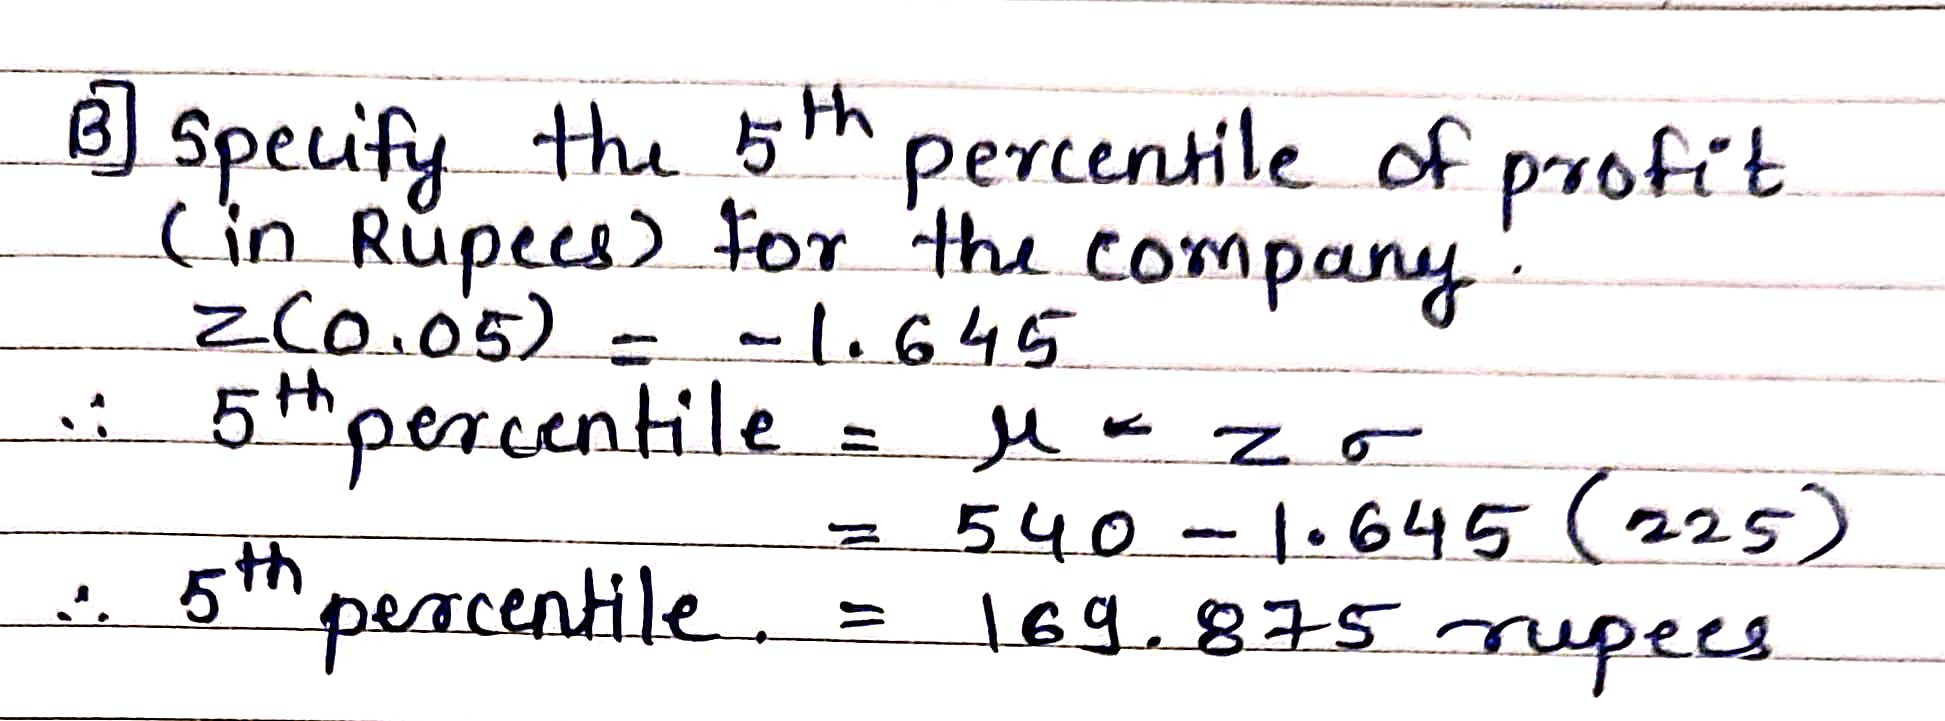 B] Specify the 5th percentile of profit
(in Rupees) for the company.
Z(0.05) = -1.645
∴ 5th percentile = μ - Z σ
= 540 - 1.645 (225)
∴ 5th percentile. = 169.875 rupees